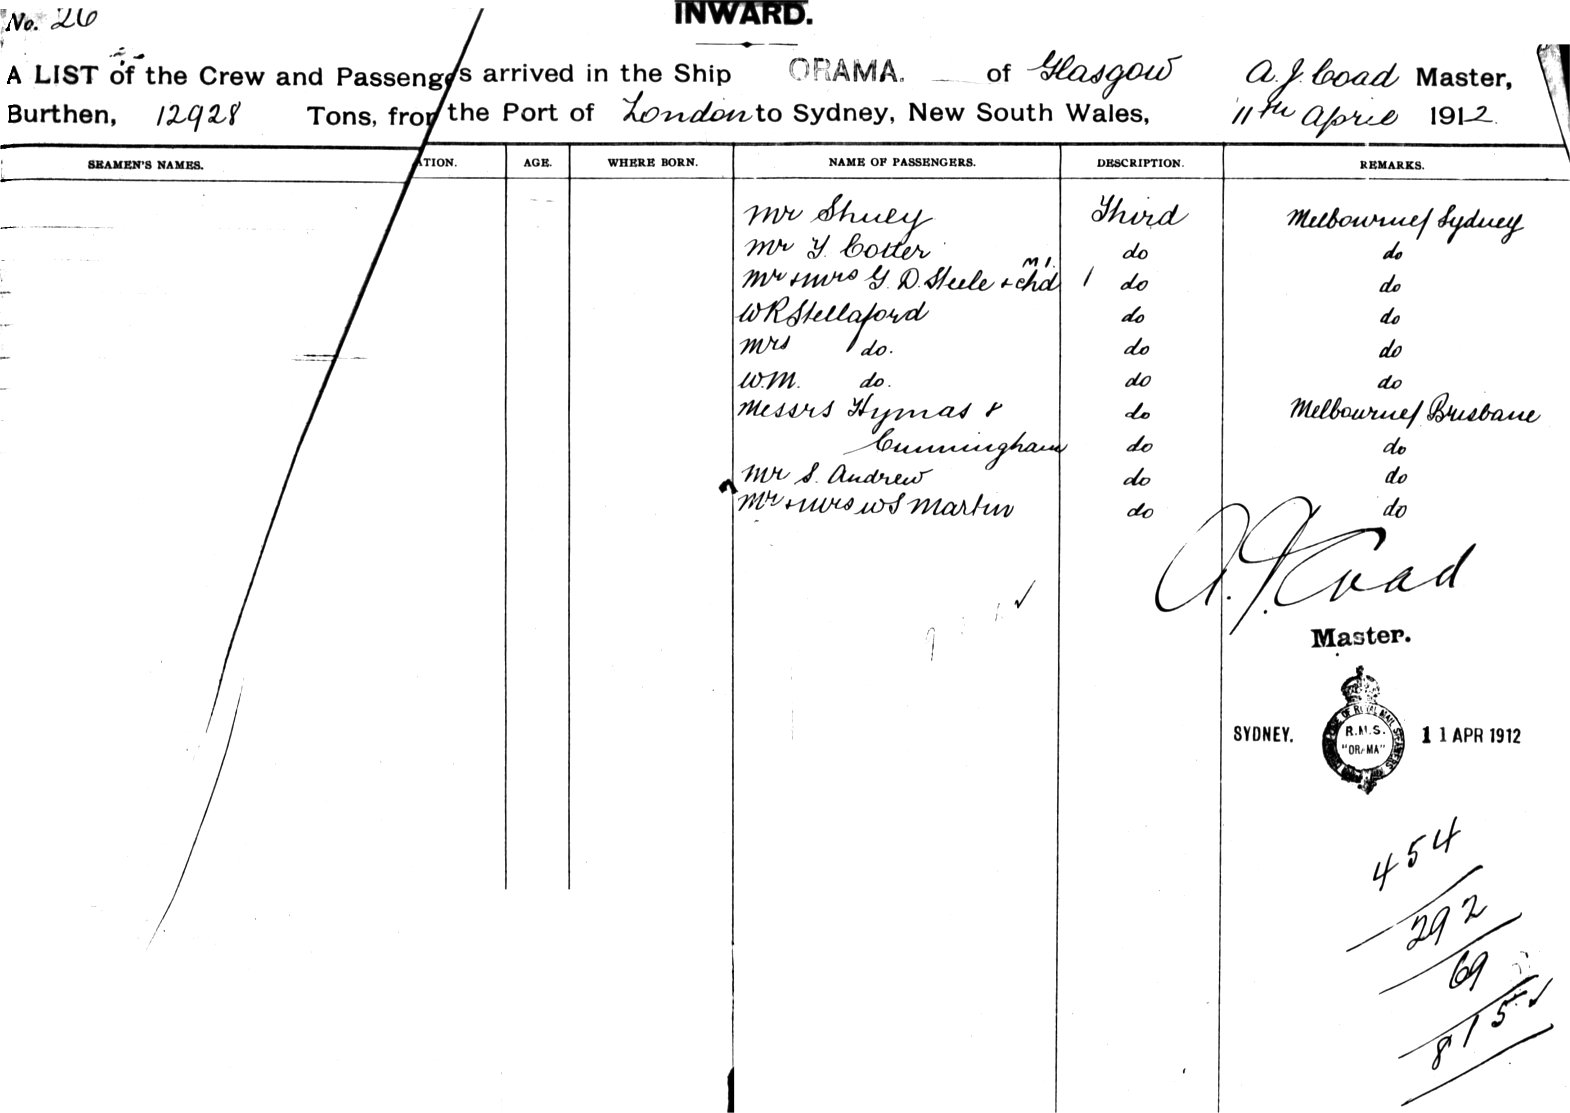 No. 26
INWARD.
A LIST of the Crew and Passenge s arrived in the Ship ORAMA. of Glasgow A. J. Coad Master,
Burthen, 12928 Tons, from the Port of London to Sydney, New South Wales, 11th April 1912.
SEAMEN'S NAMES. ATION. AGE. WHERE BORN. NAME OF PASSENGERS. DESCRIPTION. REMARKS.
Mr Shuey Third Melbourne/Sydney
Mr Y. Cotter do do
M 1.
Mr + Mrs G. D. Steele + chd 1 do do
W R Stellaford do do
Mrs do. do do
W.M. do. do do
Messrs Hymas & do Melbourne/Brisbane
Cunningham do do
Mr S. Andrew do do
Mr + Mrs W S Martin do do
A. J. Coad
Master.
SYDNEY. R.M.S. "ORAMA" 11 APR 1912
454
292
69
815